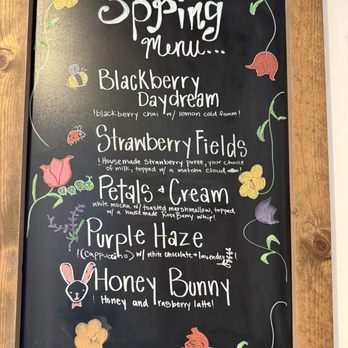 Spring
Menu...
Blackberry
Daydream
! blackberry chai w/ lemon cold foam!
Strawberry Fields
! Housemade Strawberry puree, your choice
of milk, topped w/ a matcha cloud
Petals & Cream
white mocha w/ toasted marshmallow, topped
w/ a housemade RoseBerry whip!
Purple Haze
! (cappuccino) w/ white chocolate + lavender!
Honey Bunny
! Honey and raspberry latte!